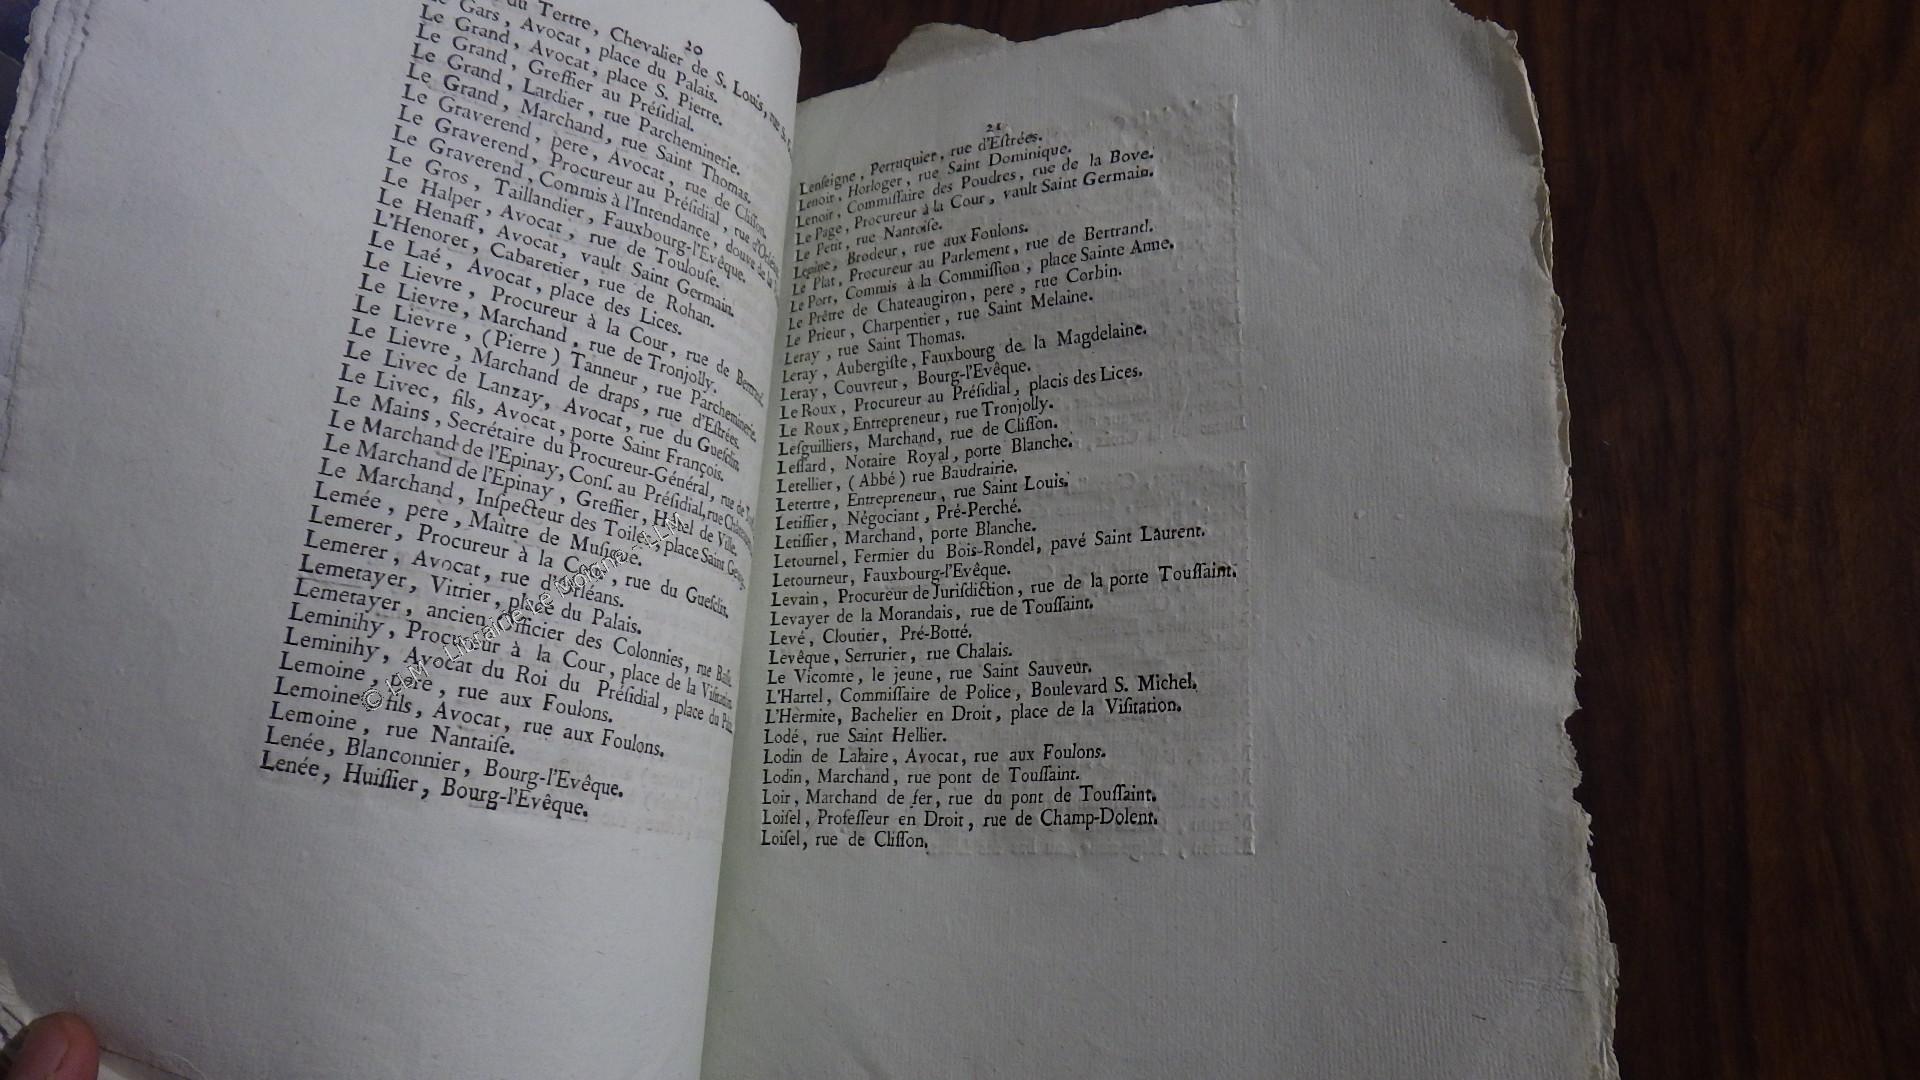 20
du Tertre, Chevalier de S. Louis, rue
Le Gars, Avocat, place du Palais.
Le Grand, Avocat, place S. Pierre.
Le Grand, Greffier au Préſidial.
Le Grand, Lardier, rue Parcheminerie.
Le Grand, Marchand, rue Saint Thomas.
Le Graverend, pere, Avocat, rue de Cliſſon.
Le Graverend, Procureur au Préſidial, rue d'Orléans
Le Graverend, Commis à l'Intendance, douve de la
Le Gros, Taillandier, Fauxbourg-l'Evêque.
Le Halper, Avocat, rue de Toulouſe.
Le Henaff, Avocat, vault Saint Germain.
L'Henoret, Cabaretier, rue de Rohan.
Le Laé, Avocat, place des Lices.
Le Lievre, Procureur à la Cour, rue de Bertrand.
Le Lievre, Marchand, rue de Tronjolly.
Le Lievre, (Pierre) Tanneur, rue Parcheminerie.
Le Lievre, Marchand de draps, rue d'Eſtrées.
Le Livec de Lanzay, Avocat, rue du Gueſclin.
Le Livec, fils, Avocat, porte Saint François.
Le Mains, Secrétaire du Procureur-Général, rue de
Le Marchand de l'Epinay, Conſ. au Préſidial, rue
Le Marchand de l'Epinay, Greffier, Hôtel de Ville.
Le Marchand, Inſpecteur des Toiles, place Saint
Lemée, pere, Maître de Muſique.
Lemerer, Procureur à la Cour, rue du Gueſclin.
Lemerer, Avocat, rue d'Orléans.
Lemetayer, Vitrier, place du Palais.
Lemetayer, ancien Officier des Colonnies, rue
Leminihy, Procureur à la Cour, place de la Viſitation.
Leminihy, Avocat du Roi du Préſidial, place du
Lemoine, pere, rue aux Foulons.
Lemoine, fils, Avocat, rue aux Foulons.
Lemoine, rue Nantaiſe.
Lenée, Blanconnier, Bourg-l'Evêque.
Lenée, Huiſſier, Bourg-l'Evêque.
21
Lenſeigne, Perruquier, rue d'Eſtrées.
Lenoir, Horloger, rue Saint Dominique.
Lenoir, Commiſſaire des Poudres, rue de la Bove.
Le Page, Procureur à la Cour, vault Saint Germain.
Le Petit, rue Nantoiſe.
Lepine, Brodeur, rue aux Foulons.
Le Plat, Procureur au Parlement, rue de Bertrand.
Le Port, Commis à la Commiſſion, place Sainte Anne.
Le Prêtre de Chateaugiron, pere, rue Corbin.
Le Prieur, Charpentier, rue Saint Melaine.
Leray, rue Saint Thomas.
Leray, Aubergiſte, Fauxbourg de la Magdelaine.
Leray, Couvreur, Bourg-l'Evêque.
Le Roux, Procureur au Préſidial, placis des Lices.
Le Roux, Entrepreneur, rue Tronjolly.
Leſguilliers, Marchand, rue de Cliſſon.
Leſſard, Notaire Royal, porte Blanche.
Letellier, (Abbé) rue Baudrairie.
Letertre, Entrepreneur, rue Saint Louis.
Letiſſier, Négociant, Pré-Perché.
Letiſſier, Marchand, porte Blanche.
Letournel, Fermier du Bois-Rondel, pavé Saint Laurent.
Letourneur, Fauxbourg-l'Evêque.
Levain, Procureur de Juriſdiction, rue de la porte Touſſaint.
Levayer de la Morandais, rue de Touſſaint.
Levé, Cloutier, Pré-Botté.
Levêque, Serrurier, rue Chalais.
Le Vicomte, le jeune, rue Saint Sauveur.
L'Hartel, Commiſſaire de Police, Boulevard S. Michel.
L'Hermite, Bachelier en Droit, place de la Viſitation.
Lodé, rue Saint Hellier.
Lodin de Lalaire, Avocat, rue aux Foulons.
Lodin, Marchand, rue pont de Touſſaint.
Loir, Marchand de fer, rue du pont de Touſſaint.
Loiſel, Profeſſeur en Droit, rue de Champ-Dolent.
Loiſel, rue de Cliſſon.